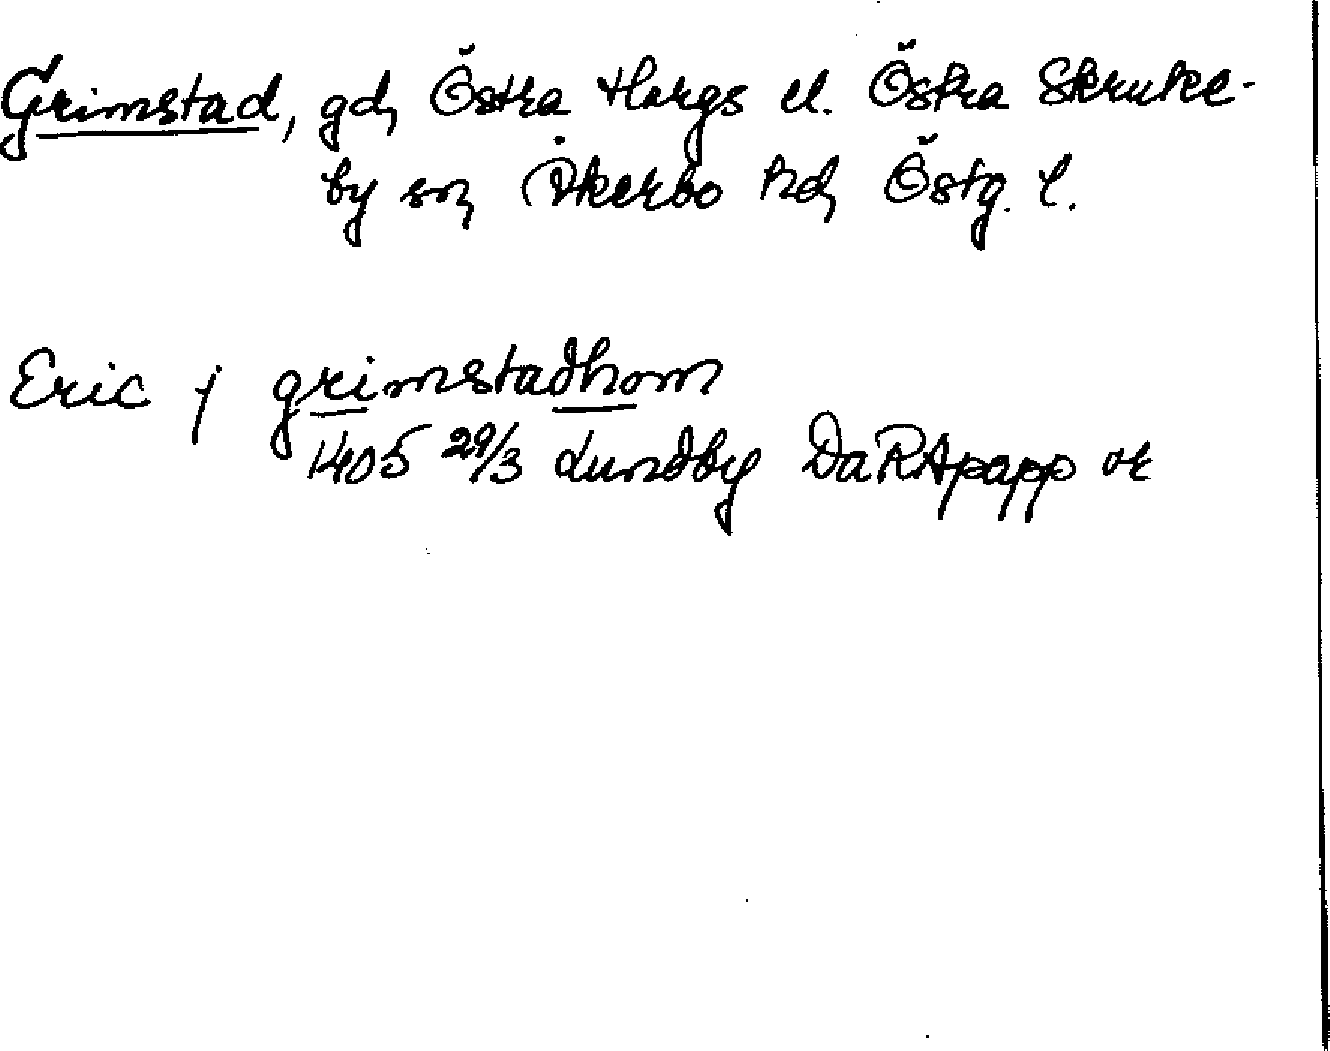 Grimstad, gd, Östra Hargs el. Östra Skruke-
by sn, Åkerbo hd, Östg. l.
Eric j grimstadhom
1405 29/3 Lundby DaRApapp or